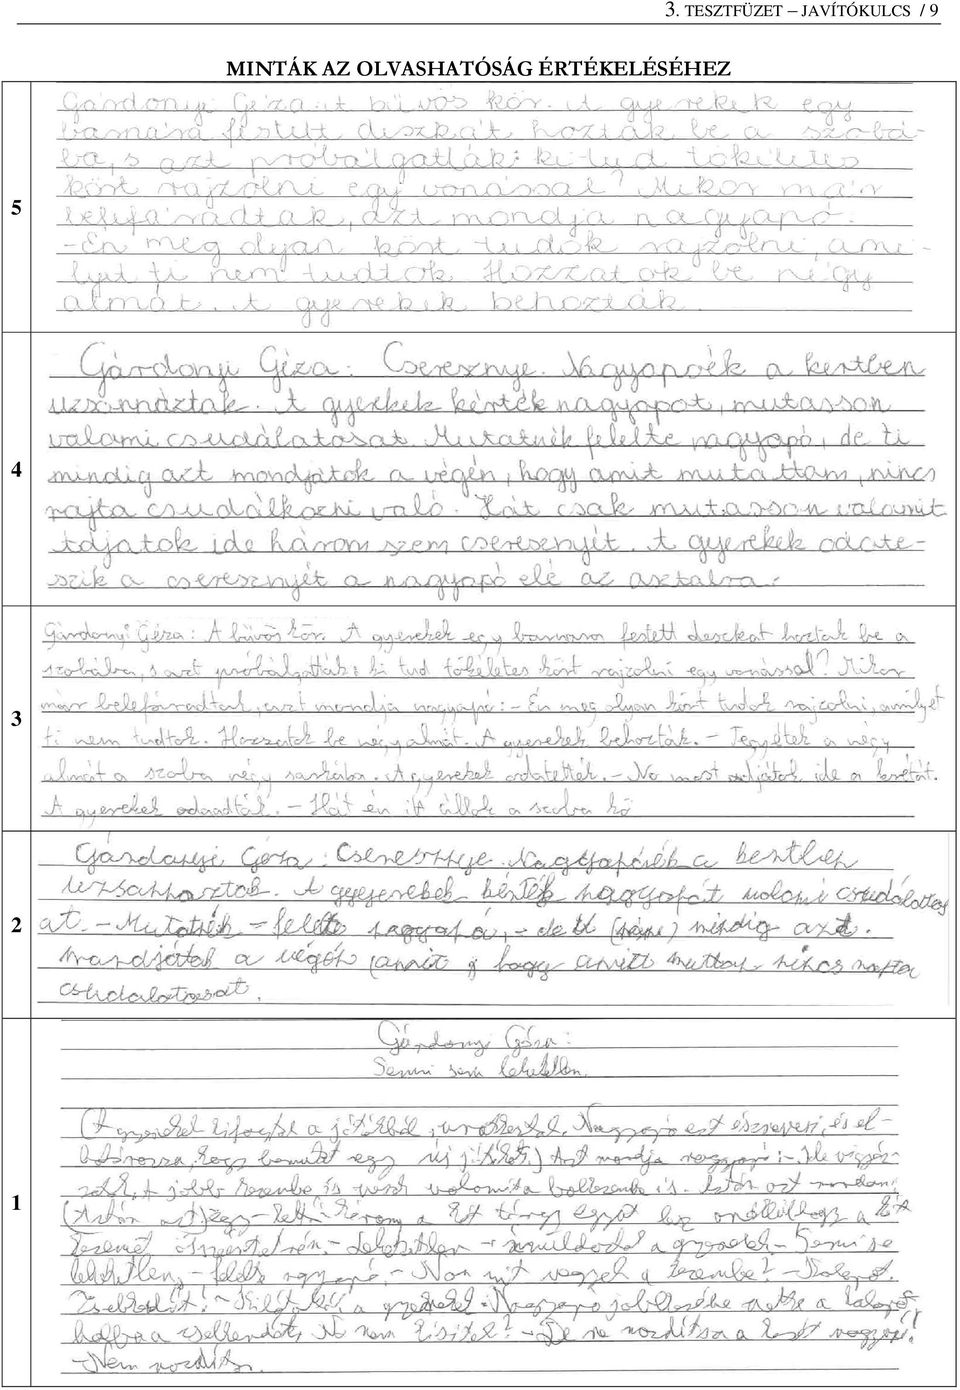 3. TESZTFÜZET – JAVÍTÓKULCS / 9
MINTÁK AZ OLVASHATÓSÁG ÉRTÉKELÉSÉHEZ
5
Gárdonyi Géza: A bűvös kör. A gyerekek egy
barnára festett deszkát hoztak be a szobá-
ba, s azt próbálgatták: ki tud tökéletes
kört rajzolni egy vonással? Mikor már
belefáradtak, azt mondja nagyapó:
-Én meg olyan kört tudok rajzolni, ami-
lyet ti nem tudtok. Hozzatok be négy
almát. A gyerekek behozták.
4
Gárdonyi Géza: Cseresznye. Nagyapóék a kertben
uzsonnáztak. A gyerkek kérték nagyapot, mutasson
valami csudálatosat. Mutatnék felelte nagyapó, de ti
mindig azt mondjátok a végén, hogy amit mutattam, nincs
rajta csudálkozni való. Hát csak mutasson valamit
adjatok ide három szem cseresznyét. A gyerekek odate-
szik a cseresznyét a nagyapó elé az asztalra.
3
Gárdonyi Géza: A bűvös kör. A gyerekek egy barnára festett deszkát hoztak be a
szobába, s azt próbálgatták: ki tud tökéletes kört rajzolni egy vonással? Mikor
már belefáradtak, azt mondja nagyapó: - Én meg olyan kört tudok rajzolni, amilyet
ti nem tudtok. Hozzatok be négy almát. A gyerekek behozták. - Tegyétek a négy
almát a szoba négy sarkába. A gyerekek odatették. - No most adjátok ide a krétát.
A gyerekek odaadták. - Hát én itt állok a szoba kö
2
Gárdonyi Géza: Cseresznye. Nagyapóék a kertben
uzsonnáztak. A kérték nagyapót valami csudálatos
at. - Mutatnék - felelte nagyapó, - de ti mindig azt.
mondjátok a végén (amit hogy amitt muttam nincs rajta
csudalatosat.
1
Gárdonyi Géza:
Semmi sem lehetetlen.
A gyerekek kifogytak a játékból, unatkoztak. Nagyapó ezt észreveszi, és el-
határozza, hogy bemutat egy új játékot.) Azt mondja nagyapó: - Ide vigyáz-
zatok. A jobb kezembe is veszek valamit a balkezembe is. Aztán azt mondom
(Aztán azt) egy - kettő - három a két tárgy együtt lesz anélkül hogy a két
kezemet összeérteném. - Lehetetlen - a gyerekek - Semmi se
lehetetlen, - felelt nagyapó. - Non mit vegyek a kezembe? - Kalapot.
Zsebkendőt! - a gyerekek. Nagyapó jobbkezébe vette a kalapot
balba a zsebkendőt. No nem - De ne mozdítsa a kezét nagyapó!
- Nem mozdítom.